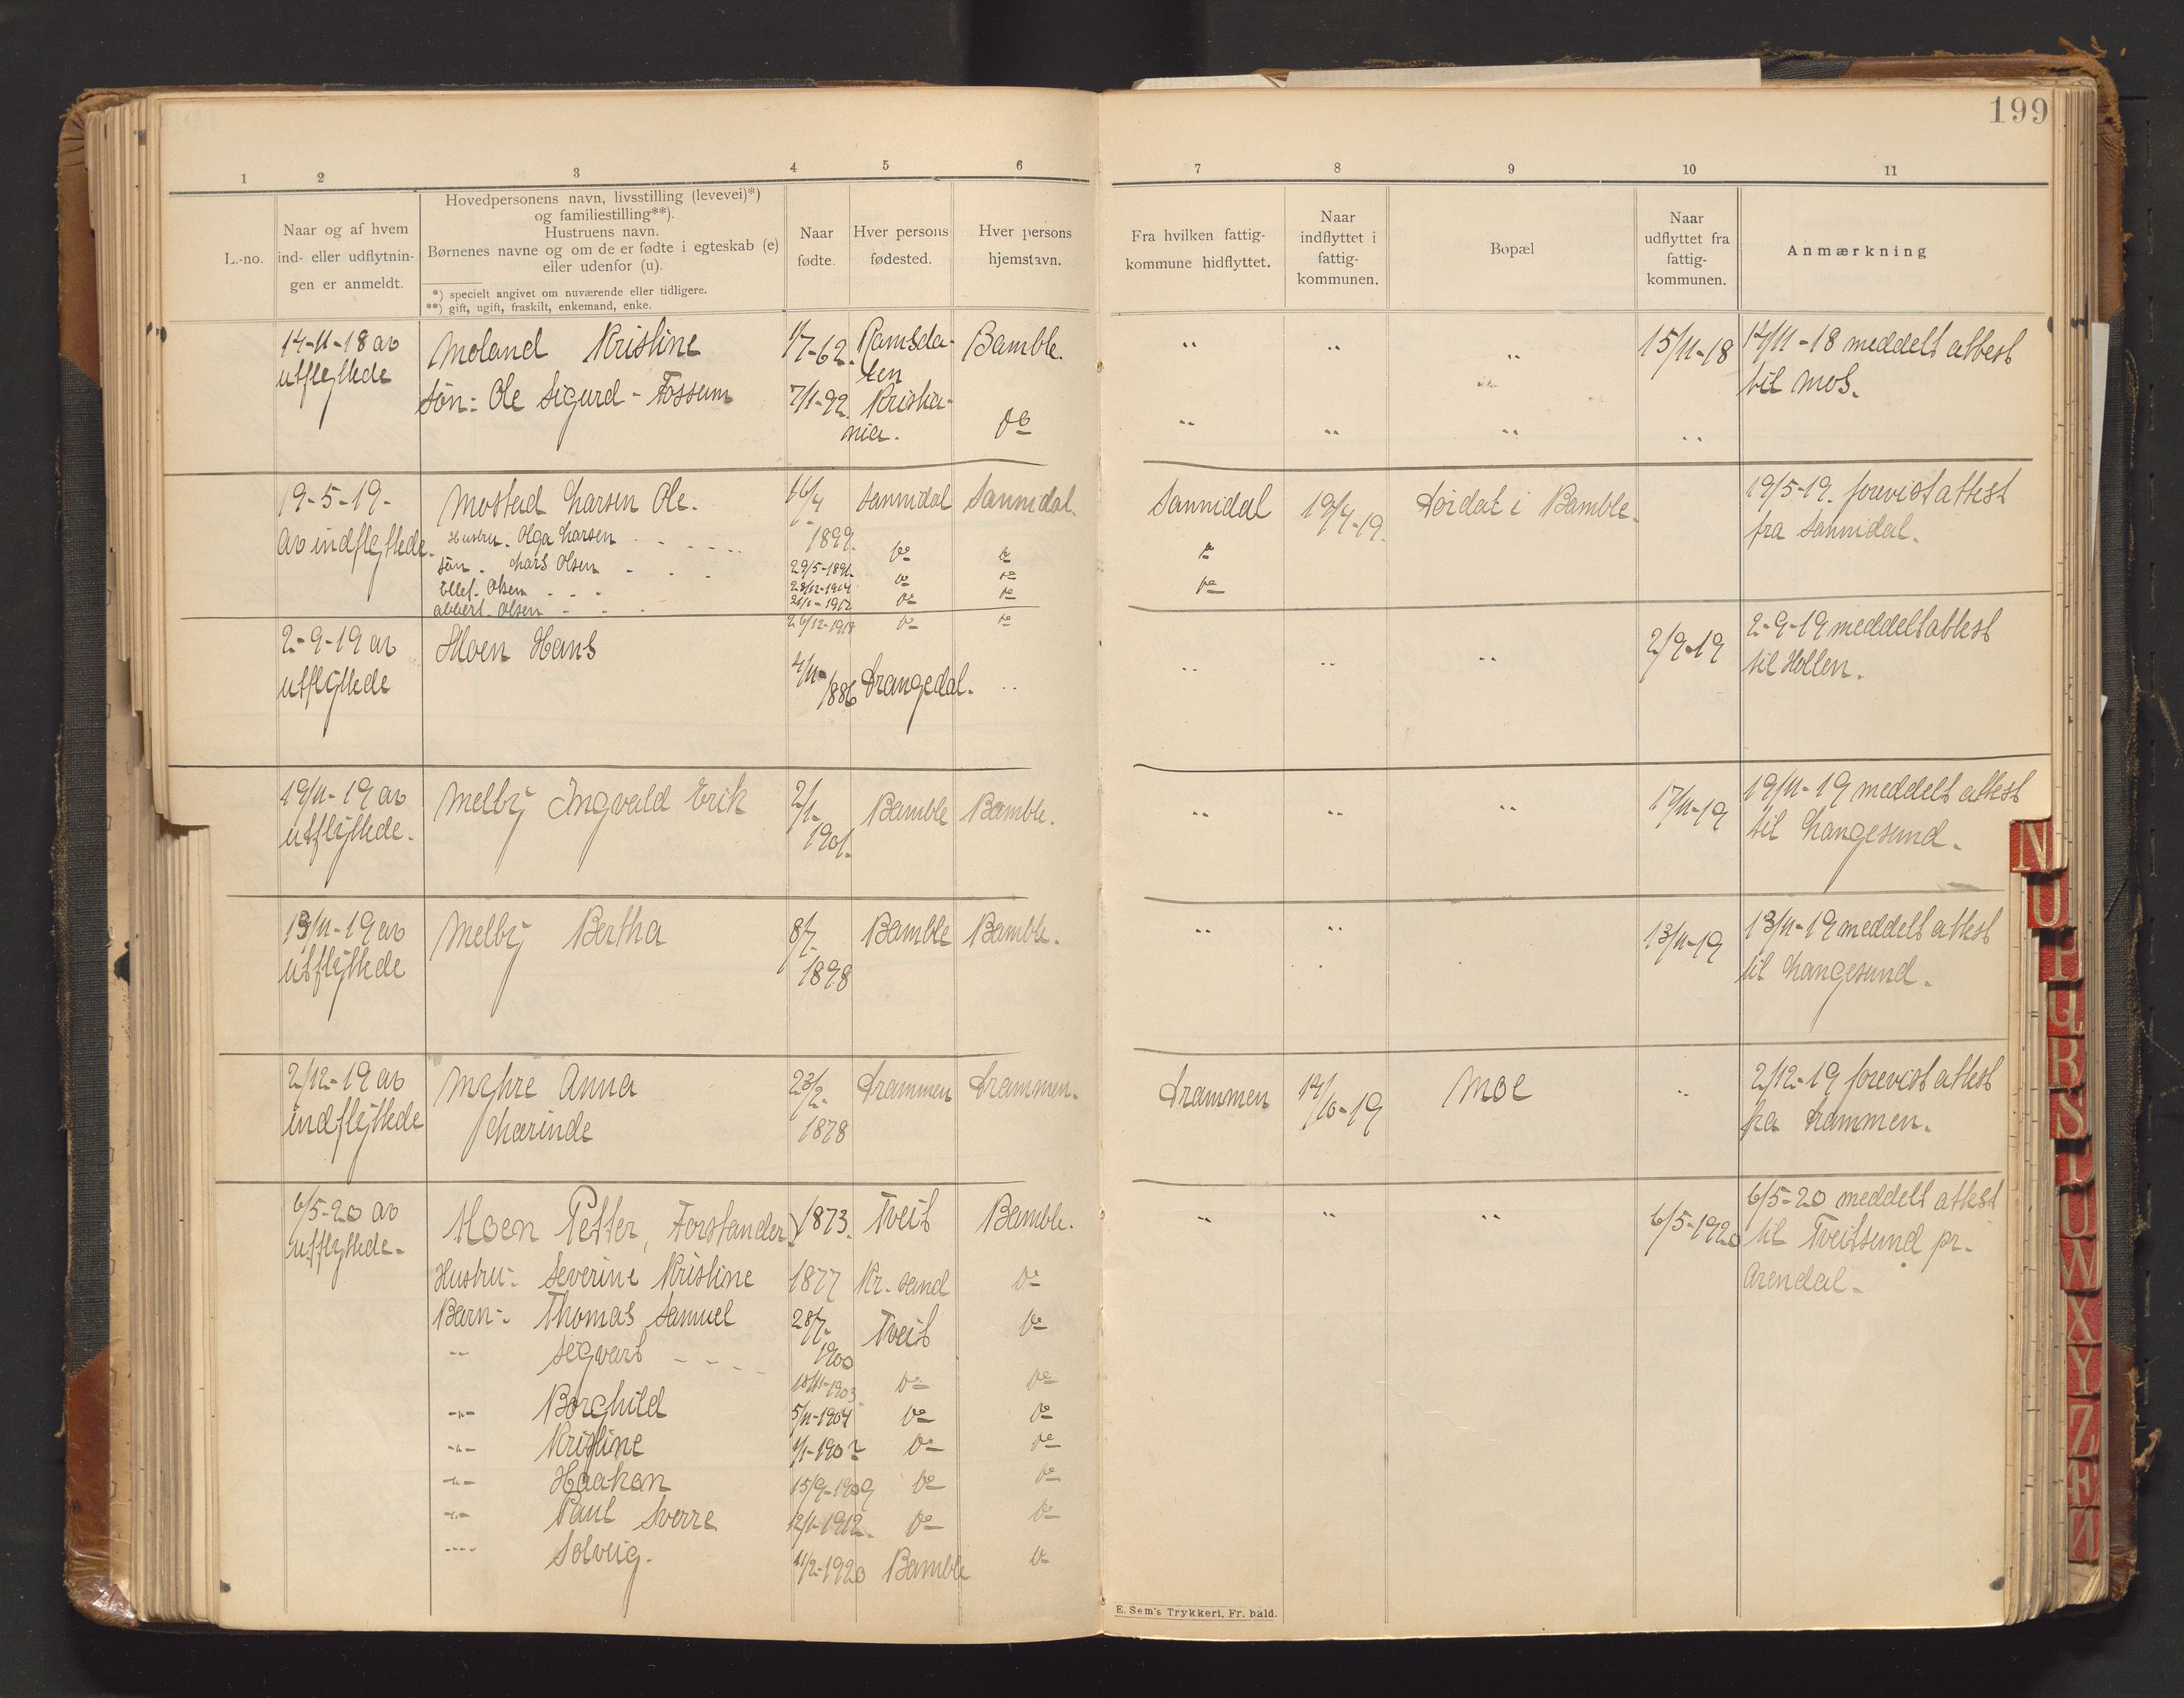 199
1 2 3 4 5 6 7 8 9 10 11
L.-no.
Naar og af hvem
ind- eller udflytnin-
gen er anmeldt.
Hovedpersonens navn, livsstilling (levevei)*)
og familiestilling**).
Hustruens navn.
Børnenes navne og om de er fødte i egteskab (e)
eller udenfor (u).
*) specielt angivet om nuværende eller tidligere.
**) gift, ugift, fraskilt, enkemand, enke.
Naar
fødte.
Hver persons
fødested.
Hver persons
hjemstavn.
Fra hvilken fattig-
kommune hidflyttet.
Naar
indflyttet i
fattig-
kommunen.
Bopæl
Naar
udflyttet fra
fattig-
kommunen.
Anmærkning
14-11-18 av Moland Kristine 1/7-62. Ramsda- Bamble. " " " 15/11-18 14/11-18 meddelt attest
utflyttede len til Mos.
Søn: Ole Sigurd - Fossum 7/1-92. Kristia-
nia. do " " " "
19-5-19- Mostad Larsen Ole. 16/4 Sannidal Sannidal. Sannidal 19/4-19. Tordal i Bamble. 19/5-19. forevist attest
av indflyttede. Hustru. Olga Larsen 1899. do do do fra Sannidal.
Søn. Lars Olsen 29/5-1891. do do do
Ellef. Olsen 28/12-1904 do do
Albert. Olsen 21/1-1912
26/12-1918 do do
2-9-19 av Moen Hans 4/11- Drangedal. " " " " 2/9-19 2-9-19 meddelt attest
utflyttede 1886 til Hollen.
19/11-19 av Melby Ingvald Erik 2/1- Bamble Bamble. " " " 17/11-19 19/11-19 meddelt attest
utflyttede. 1901. til Langesund.
13/11-19 av Melby Bertha 8/7- Bamble Bamble. " " 13/11-19 13/11-19 meddelt attest
utflyttede 1898 til Langesund.
2/12-19 av Myhre Anna 23/2- Drammen Drammen. Drammen 14/10-19 Moe " 2/12-19 forevist attest
indflyttede Lærinde 1878 fra Drammen.
6/5-20 av Moen Petter, Forstander 1873. Tveit Bamble. " " " 6/5-1920 6/5-20 meddelt attest
utflyttede. til Tveitsund pr.
Hustru: Severine Kristine 1877 Kr. sand do Arendal.
Barn: Thomas Samuel 28/7- Tveit do
" Sigvart 1900
10/11-1903 do do
" Borghild 5/11-1904 do do
" Kristine 1/1-1907 do do
" Haakon 15/9-1909 do do
" Paul Sverre 12/1-1912. do do
" Solveig. 11/2-1920 Bamble do
E. Sem's Trykkeri, Fr. hald.
N
O
P
Q
R
S
T
U
W
X
Y
Z
Æ
Ø